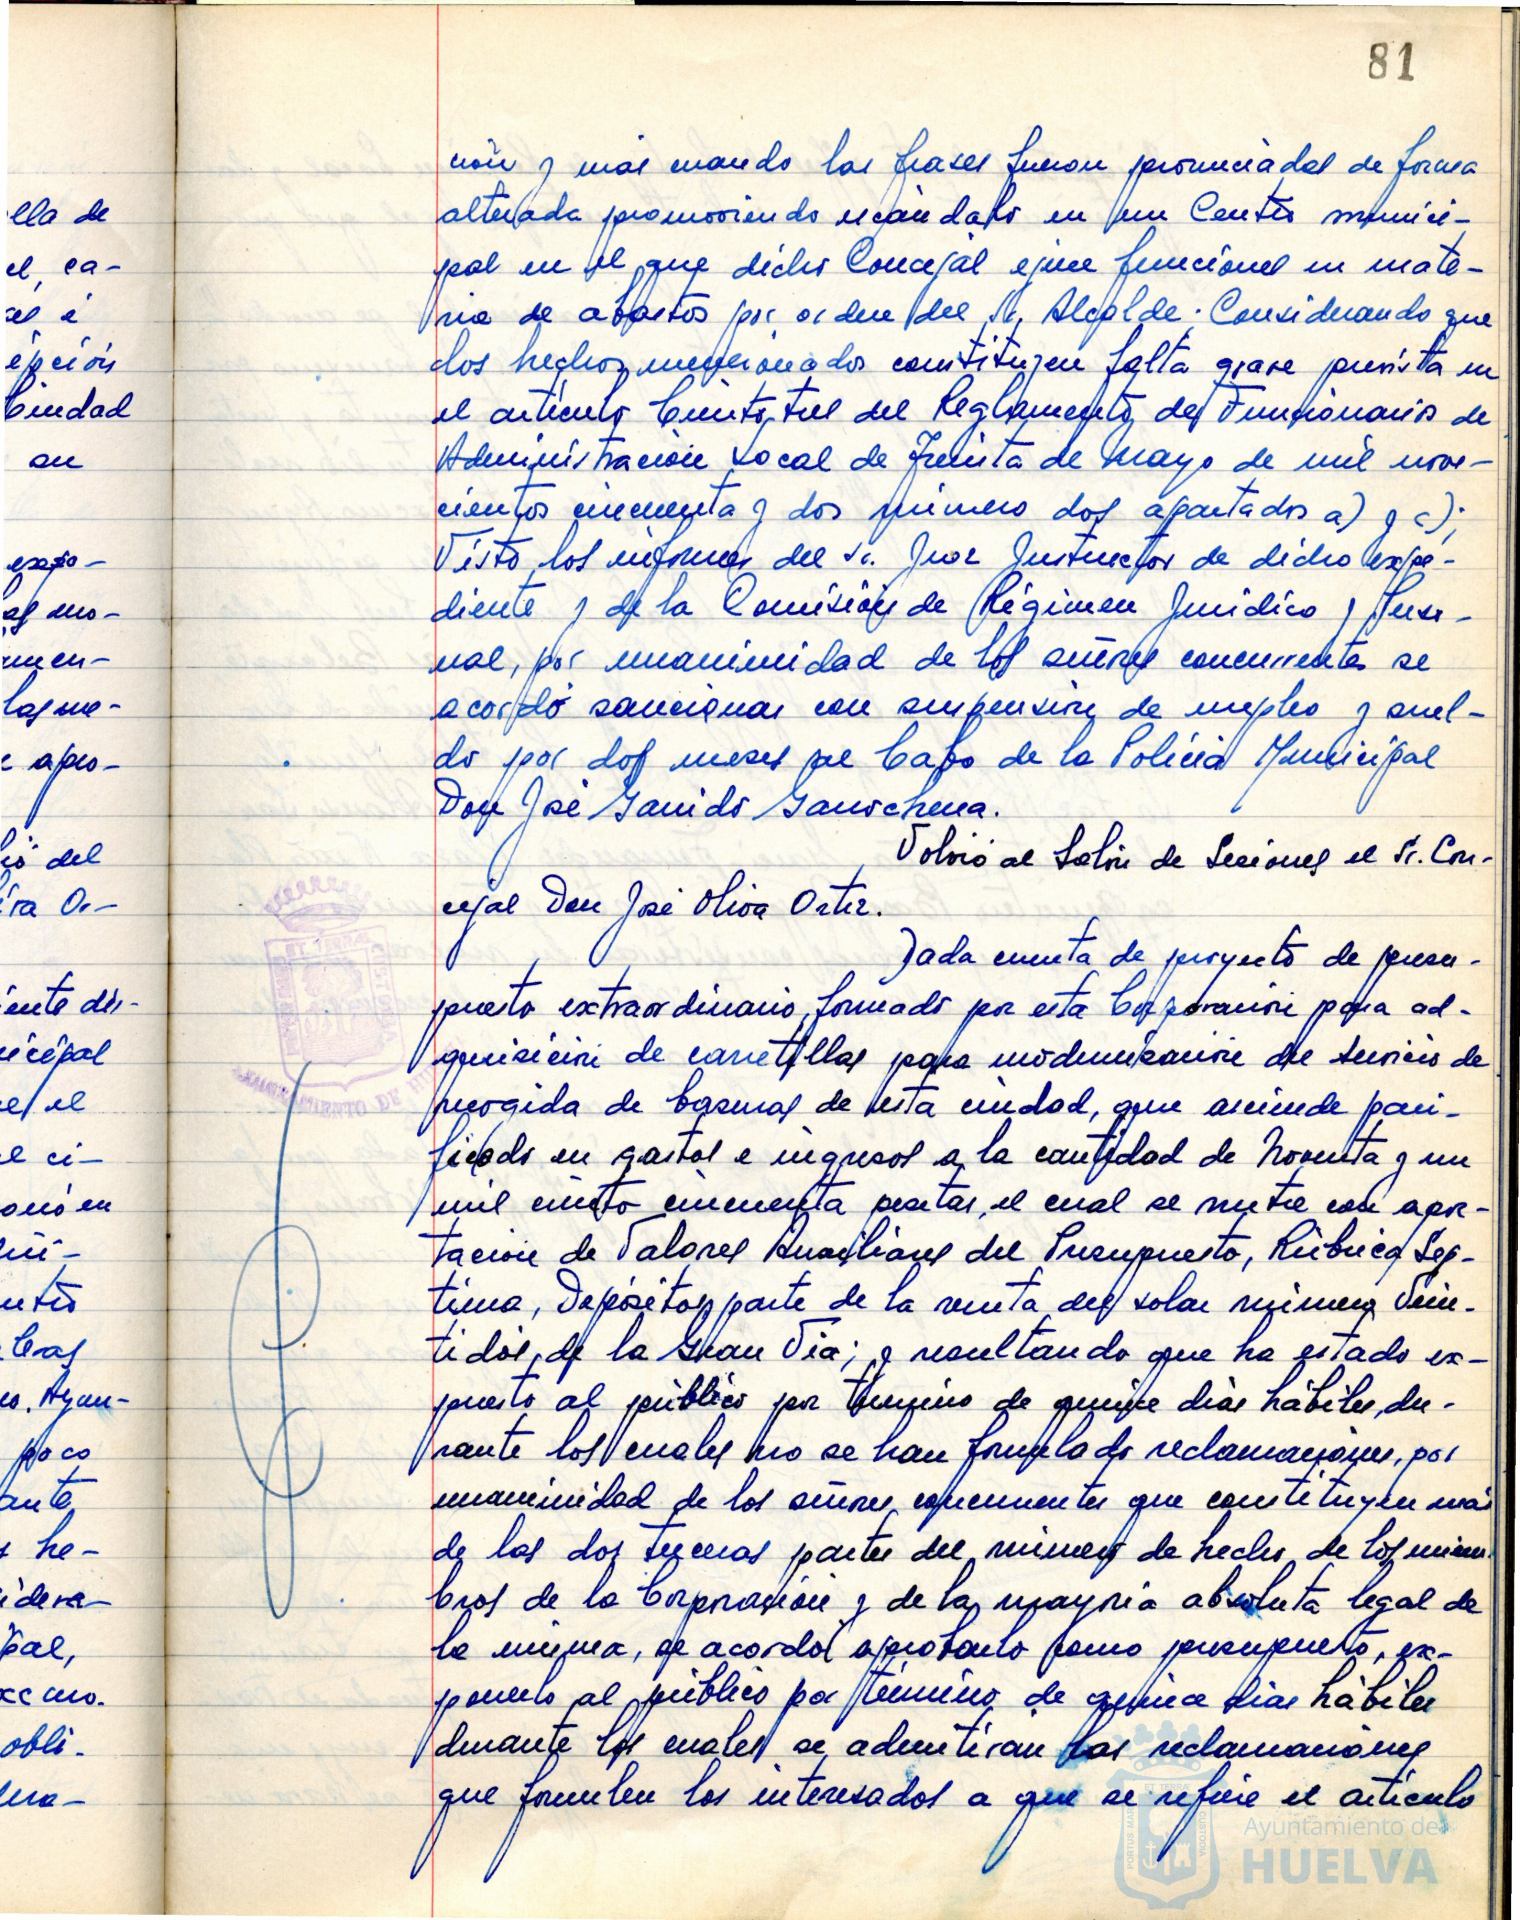 81
ción y más cuando las frases fueron pronunciadas de forma
alterada promoviendo escándalo en un Centro munici-
pal en el que dicho Concejal ejerce funciones en mate-
ria de abastos por orden del Sr. Alcalde. Considerando que
los hechos mencionados constituyen falta grave prevista en
el artículo Ciento tres del Reglamento de Funcionarios de
Administración Local de Treinta de Mayo de mil nove-
cientos cincuenta y dos número dos apartados a) y c);
Visto los informes del Sr. Juez Instructor de dicho expe-
diente y de la Comisión de Régimen Jurídico y Perso-
nal, por unanimidad de los señores concurrentes se
acordó sancionar con suspensión de empleo y suel-
do por dos meses al Cabo de la Policía Municipal
Don José Garrido Garrochena.
Volvió al Salón de Sesiones el Sr. Con-
cejal Don José Oliva Ortiz.
Dada cuenta de proyecto de presu-
puesto extraordinario, formado por esta Corporación para ad-
quisición de carretillas para modernización del servicio de
recogida de basuras de esta ciudad, que asciende pari-
ficado en gastos e ingresos a la cantidad de Noventa y un
mil ciento cincuenta pesetas, el cual se nutre con apor-
tación de Valores Auxiliares del Presupuesto, Rúbrica Sép-
tima, Depósitos, parte de la venta del solar número Vein-
tidós, de la Gran Vía; y resultando que ha estado ex-
puesto al público por término de quince días hábiles, du-
rante los cuales no se han formulado reclamaciones, por
unanimidad de los señores concurrentes que constituyen más
de las dos terceras partes del número de hecho de los miem-
bros de la Corporación y de la mayoría absoluta legal de
la misma, se acordó aprobarlo como presupuesto, ex-
ponerlo al público por término de quince días hábiles
durante los cuales se admitirán las reclamaciones
que formulen los interesados a que se refiere el artículo
Ayuntamiento de
HUELVA